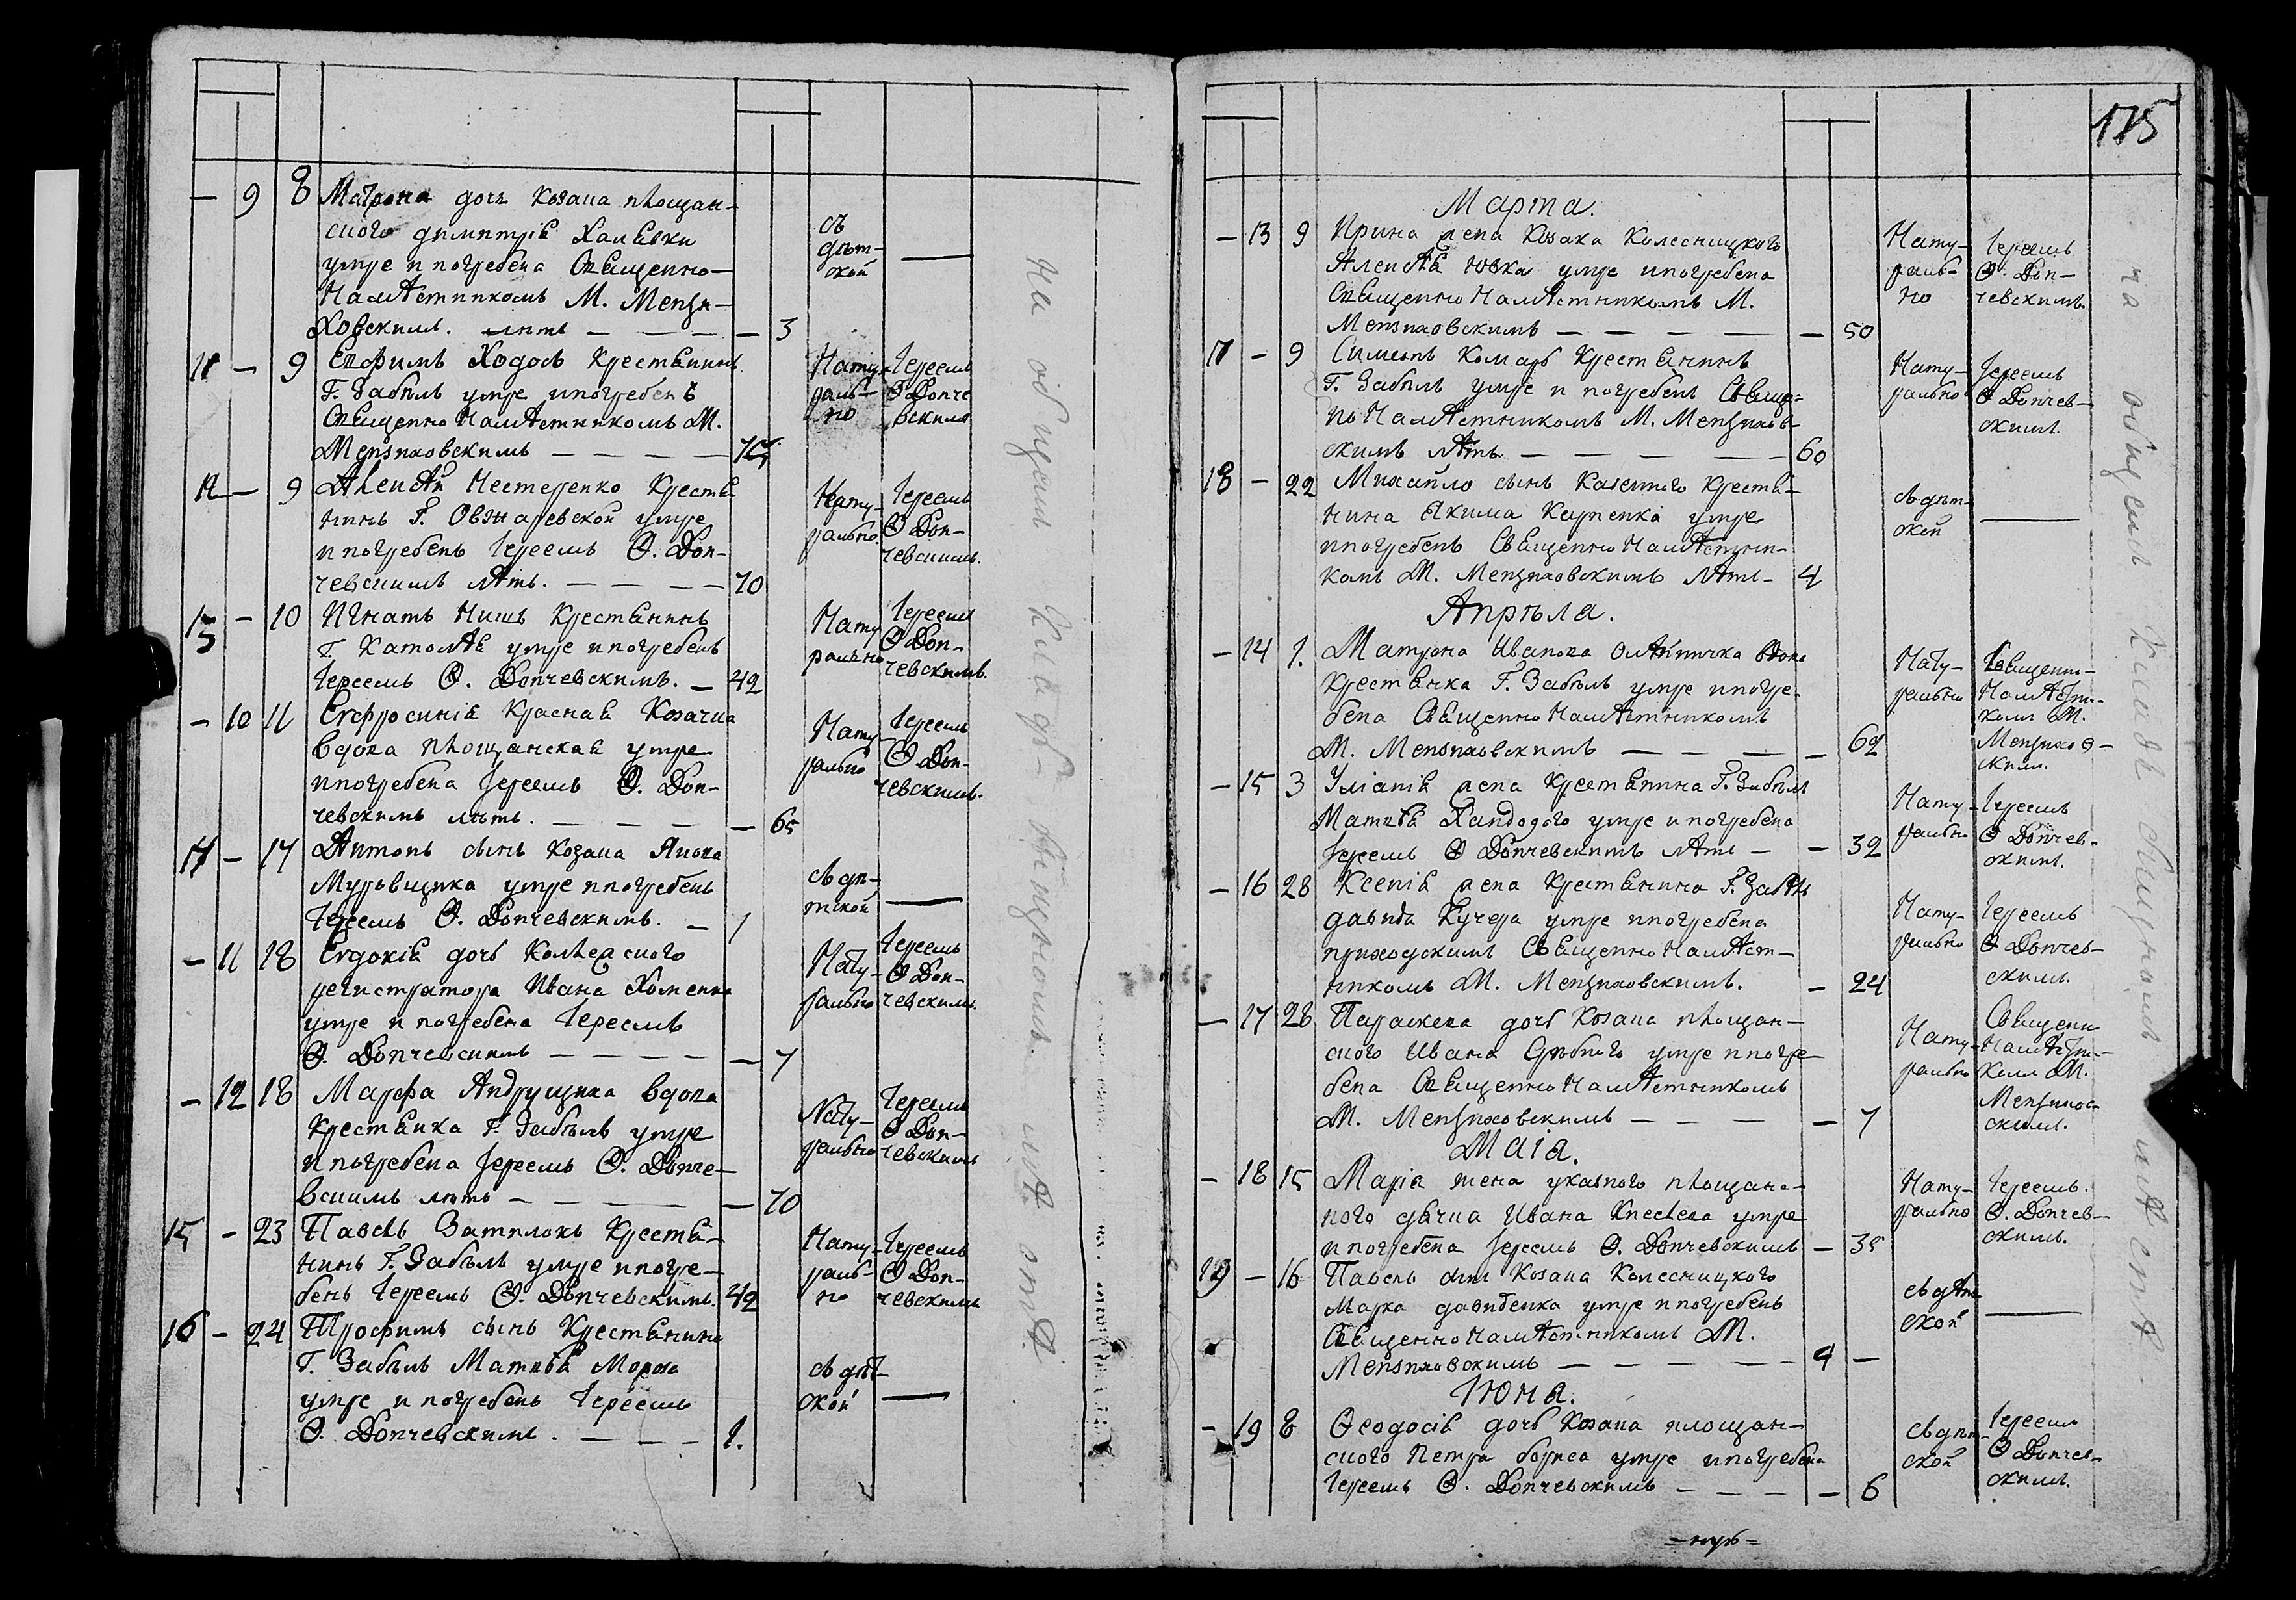 — 9 8 Матрона дочь козака площан-
ского димитрія Халявки
умре и погребена Священно-
Намѣстникомъ М. Мензи-
ховскимъ. лѣтъ — — — — 3
съ
дѣт-
ской —
11 — 9 Евфимъ Ходосъ крестьянинъ
Г. Забѣлъ умре и погребенъ
Священно Намѣстникомъ М.
Мензиховскимъ — — — —
Нату-
раль-
но
Іереемъ
Ѳ Допче
вскимъ
12 — 9 Алексѣй Нестеренко крестья
нинъ Г. Овжаревской умре
и погребенъ Іереемъ Ѳ. Доп-
чевскимъ лѣтъ. — — — — 70
Нату-
рально.
Іереемъ
Ѳ Доп-
чевскимъ.
13 — 10 Игнатъ Нишъ крестьянинъ
Г. умре и погребенъ
Іереемъ Ѳ. Допчевскимъ. — 42
Нату
рально
Іереемъ
Ѳ Доп-
чевскимъ.
— 10 11 Евфросинія Красная козачка
вдова площанская умре
и погребена Іереемъ Ѳ. Доп-
чевскимъ лѣтъ. — — — — 65
Нату
рально
Іереемъ
Ѳ Доп-
чевскимъ.
14 — 17 Антонъ сынъ козака Якова
Муровщика умре и погребенъ
Іереемъ Ѳ. Допчевскимъ. — 1
съ дѣ-
тской —
— 11 18 Евдокія дочь Коллежского
регистратора Ивана Хоменка
умре и погребена Іереемъ
Ѳ. Допчевскимъ — — — — — 7
Нату-
рально
Іереемъ
Ѳ Доп-
чевскимъ.
— 12 18 Марфа Андрущиха вдова
крестьянка Г. Забѣлъ умре
и погребена Іереемъ Ѳ. Допче-
вскимъ лѣтъ — — — — 70
Нату-
рально
Іереемъ
Ѳ Доп-
чевскимъ
15 — 23 Павелъ Затилокъ крестья-
нинъ Г. Забѣлъ умре и погре-
бенъ Іереемъ Ѳ. Допчевскимъ. 42
Нату-
раль-
но
Іереемъ
Ѳ Доп-
чевскимъ
16 — 24 Трофимъ сынъ крестьянина
Г. Забѣлъ Матвѣя Мороза
умре и погребенъ Іереемъ
Ѳ. Допчевскимъ. — — — 1.
съ дѣт-
ской —
на общемъ кладб-
175
Марта.
— 13 9 Ирина жена козака Колесницкого
Алексѣя Ювка умре и погребена
Священно Намѣстникомъ М.
Мензиховскимъ — — — — — 50
Нату-
раль-
но
Іереемъ
Ѳ. Доп-
чевскимъ.
17 — 9 Симеонъ Комаръ крестьянинъ
Г. Забѣлъ умре и погребенъ Свяще-
но Намѣстникомъ М. Мензихов-
скимъ лѣтъ — — — — 60
Нату-
рально
Іереемъ
Ѳ Допчев-
скимъ.
18 — 22 Михайло сынъ казенного крестья-
нина Якима Карпенка умре
и погребенъ Священно Намѣстни-
комъ М. Мензиховскимъ лѣтъ — 4
съ дѣт-
ской —
Апрѣля.
— 14 1. Матрона Иванова Олѣйничка вдова
крестьянка Г. Забѣлъ умре и погре-
бена Священно Намѣстникомъ
М. Мензиховскимъ — — — — 62
Нату-
рально
Священно-
Намѣстни-
комъ М.
Мензихов-
скимъ.
— 15 3 Уліанія жена крестьянина Г. Забѣлъ
Матвѣя умре и погребена
Іереемъ Ѳ Допчевскимъ лѣтъ — — 32
Нату-
рально
Іереемъ
Ѳ Допчев-
скимъ.
— 16 28 Ксенія жена крестьянина Г. Забѣлъ
Давида Кучера умре и погребена
приходскимъ Священно Намѣст-
никомъ М. Мензиховскимъ. — 24
Нату-
рально
Іереемъ
Ѳ Допчев-
скимъ.
— 17 28 Параскева дочь козака площан-
ского Ивана Срѣбного умре и погре-
бена Священно Намѣстникомъ
М. Мензиховскимъ — — — — 7
Нату-
рально
Священн
Намѣстни-
комъ М.
Мензихов-
скимъ.
Маіа.
— 18 15 Марія жена указного площанс-
кого дьячка Ивана умре
и погребена Іереемъ Ѳ. Допчевскимъ — 35
Нату-
рально
Іереемъ.
Ѳ. Допчев-
скимъ.
19 — 16 Павелъ сынъ козака Колесницкого
Марка Давиденка умре и погребенъ
Священно Намѣстникомъ М.
Мензиховскимъ — — — — — 4 —
съ дѣт
ской —
Іюня.
— 19 8 Ѳеодосія дочь козака площан-
ского Петра Бориса умре и погребена
Іереемъ Ѳ. Допчевскимъ — — — — 6
съ дѣт-
ской
Іереемъ
Ѳ Допчев-
скимъ.
на общемъ кладбищномъ мѣстѣ